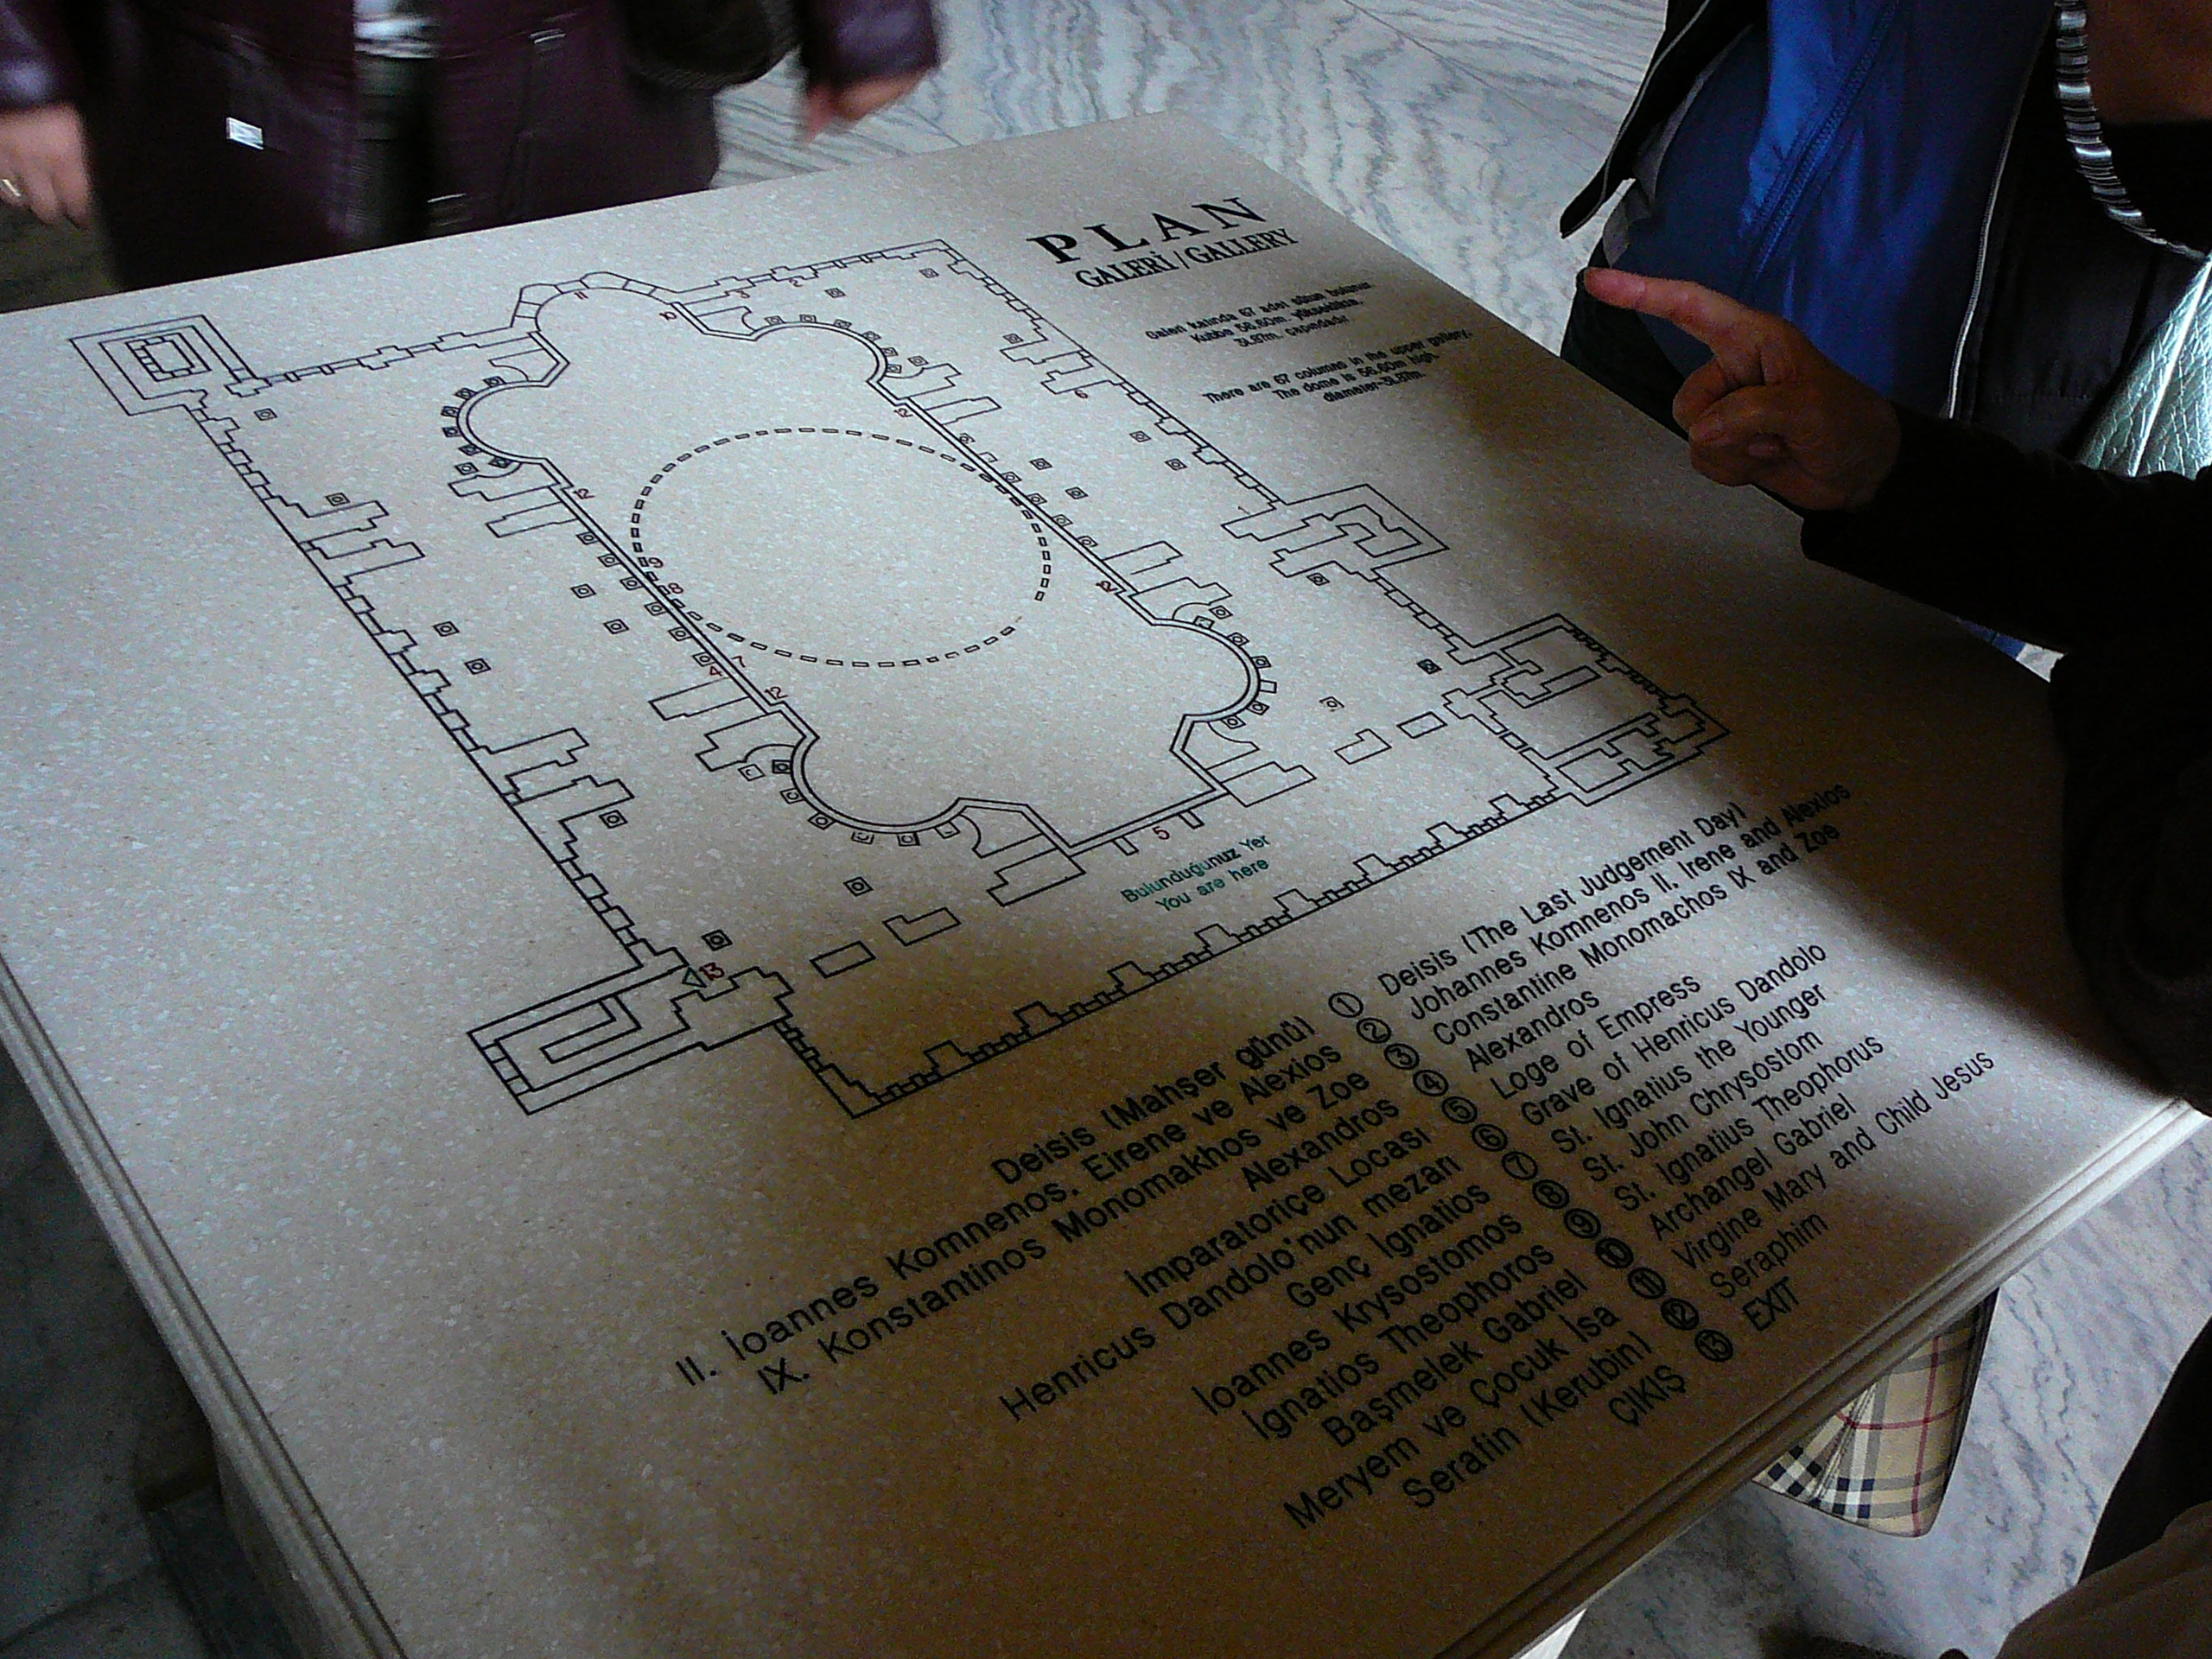 PLAN
GALERİ / GALLERY
Galeri katında 67 adet sütun bulunur.
Kubbe 56.60m. yükseklikte,
31.87m. çapındadır.
There are 67 columns in the upper gallery.
The dome is 56.60m high.
diameter-31.87m.
11
10
3
2
12
6
12
1
9
8
12
7
4
12
5
13
Bulunduğunuz Yer
You are here
Deisis (Mahşer günü) 1 Deisis (The Last Judgement Day)
II. İoannes Komnenos. Eirene ve Alexios 2 Johannes Komnenos II. Irene and Alexios
IX. Konstantinos Monomakhos ve Zoe 3 Constantine Monomachos IX and Zoe
Alexandros 4 Alexandros
İmparatoriçe Locası 5 Loge of Empress
Henricus Dandolo'nun mezarı 6 Grave of Henricus Dandolo
Genç Ignatios 7 St. Ignatius the Younger
İoannes Krysostomos 8 St. John Chrysostom
Ignatios Theophoros 9 St. Ignatius Theophorus
Başmelek Gabriel 10 Archangel Gabriel
Meryem ve Çocuk İsa 11 Virgine Mary and Child Jesus
Serafin (Kerubin) 12 Seraphim
ÇIKIŞ 13 EXIT